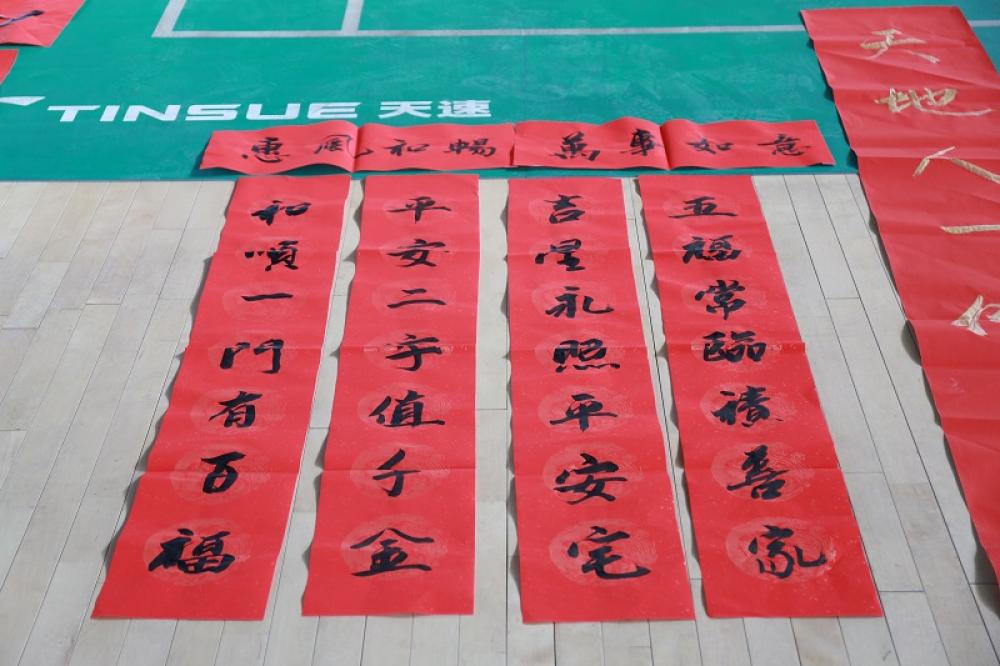 TINSUE 天速
惠風和暢
萬事如意
和順一門有百福
平安二字值千金
吉星永照平安宅
五福常臨積善家
天地人